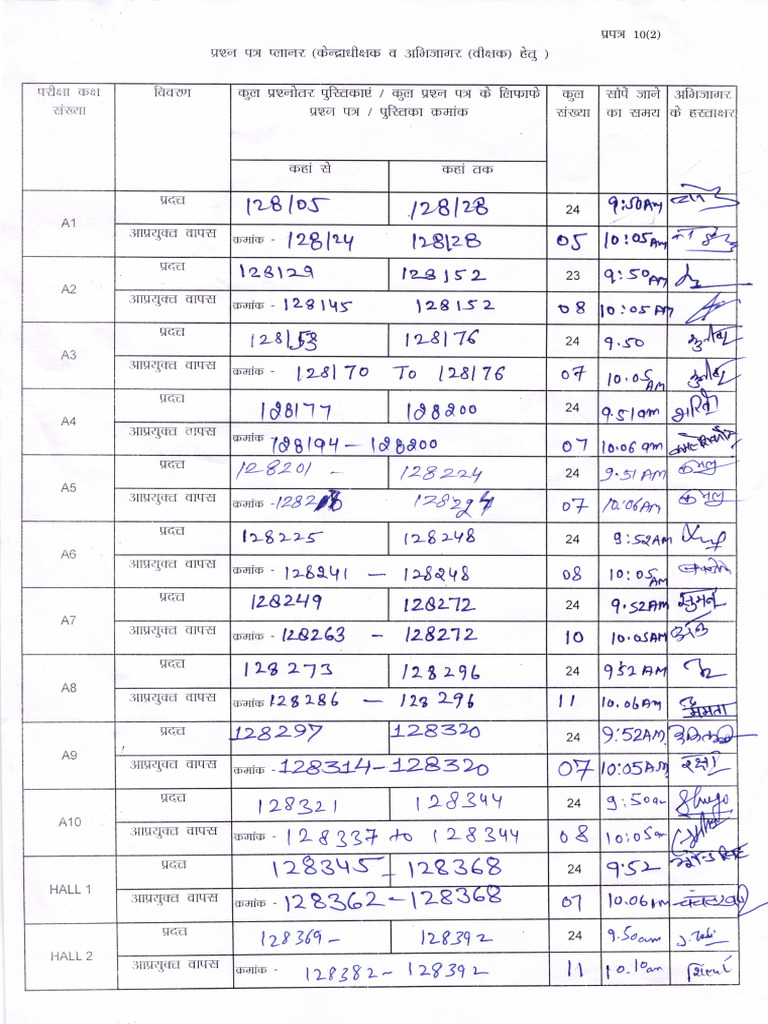 प्रपत्र 10(2)
प्रश्न पत्र प्लानर (केन्द्राधीक्षक व अभिजागर (वीक्षक) हेतु )
परीक्षा कक्ष संख्या विवरण कुल प्रश्नोतर पुस्तिकाएं / कुल प्रश्न पत्र के लिफाफे प्रश्न पत्र / पुस्तिका क्रमांक कुल संख्या सौपें जाने का समय अभिजागर के हस्ताक्षर
कहां से कहां तक
A1 प्रदत्त 128105 128128 24 9:50AM
आप्रयुक्त वापस क्रमांक - 128124 128128 05 10:05AM
A2 प्रदत्त 128129 128152 23 9:50AM
आप्रयुक्त वापस क्रमांक - 128145 128152 08 10:05AM
A3 प्रदत्त 128153 128176 24 9.50
आप्रयुक्त वापस क्रमांक - 128170 To 128176 07 10:05AM
A4 प्रदत्त 128177 128200 24 9.51am
आप्रयुक्त वापस क्रमांक 128194 - 128200 07 10:06am
A5 प्रदत्त 128201 - 128224 24 9:51AM
आप्रयुक्त वापस क्रमांक - 128224 07 10:06AM
A6 प्रदत्त 128225 128248 24 9:52AM
आप्रयुक्त वापस क्रमांक - 128241 - 128248 08 10:05AM
A7 प्रदत्त 128249 128272 24 9.52AM सुमन
आप्रयुक्त वापस क्रमांक - 128263 - 128272 10 10.05AM
A8 प्रदत्त 128273 128296 24 952AM
आप्रयुक्त वापस क्रमांक 128286 - 128296 11 10.06AM ममता
A9 प्रदत्त 128297 128320 24 9:52AM
आप्रयुक्त वापस क्रमांक - 128314-128320 07 10:05AM रक्षा
A10 प्रदत्त 128321 128344 24 9:50am
आप्रयुक्त वापस क्रमांक - 128337 to 128344 08 10:05am
HALL 1 प्रदत्त 128345 - 128368 24 9.52
आप्रयुक्त वापस क्रमांक - 128362-128368 07 10.06AM
HALL 2 प्रदत्त 128369- 128392 24 9.50am
आप्रयुक्त वापस क्रमांक - 128382-128392 11 10.10am